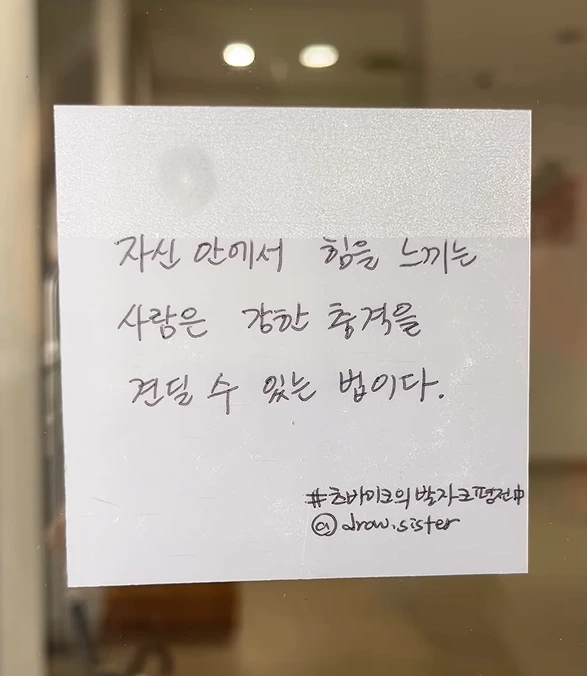 자신 안에서 힘을 느끼는
사람은 강한 충격을
견딜 수 있는 법이다.
#츠바이크의 발자크평전中
@draw.sister